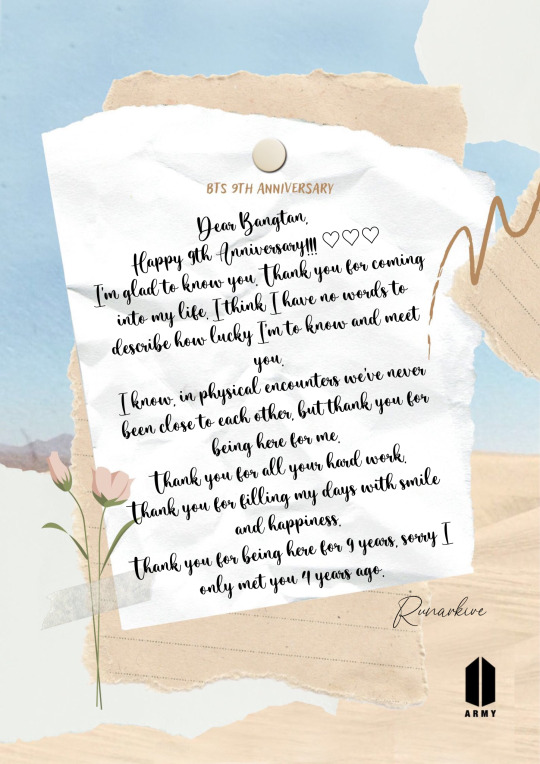 BTS 9TH ANNIVERSARY
Dear Bangtan,
Happy 9th Anniversary!!! ♡♡♡
I'm glad to know you. Thank you for coming
into my life. I think I have no words to
describe how lucky I'm to know and meet
you.
I know, in physical encounters we've never
been close to each other, but thank you for
being here for me.
Thank you for all your hard work.
Thank you for filling my days with smile
and happiness.
Thank you for being here for 9 years, sorry I
only met you 4 years ago.
Runarkive
ARMY